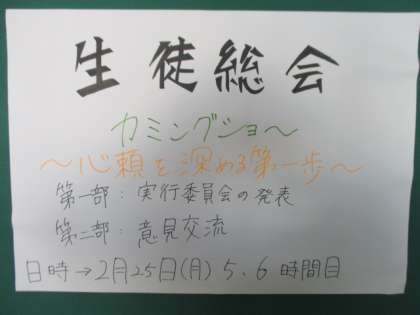 生徒総会
カミングショ〜
〜心頼を深める第一歩〜
第一部：実行委員会の発表
第二部：意見交流
日時→2月25日(月) 5.6時間目